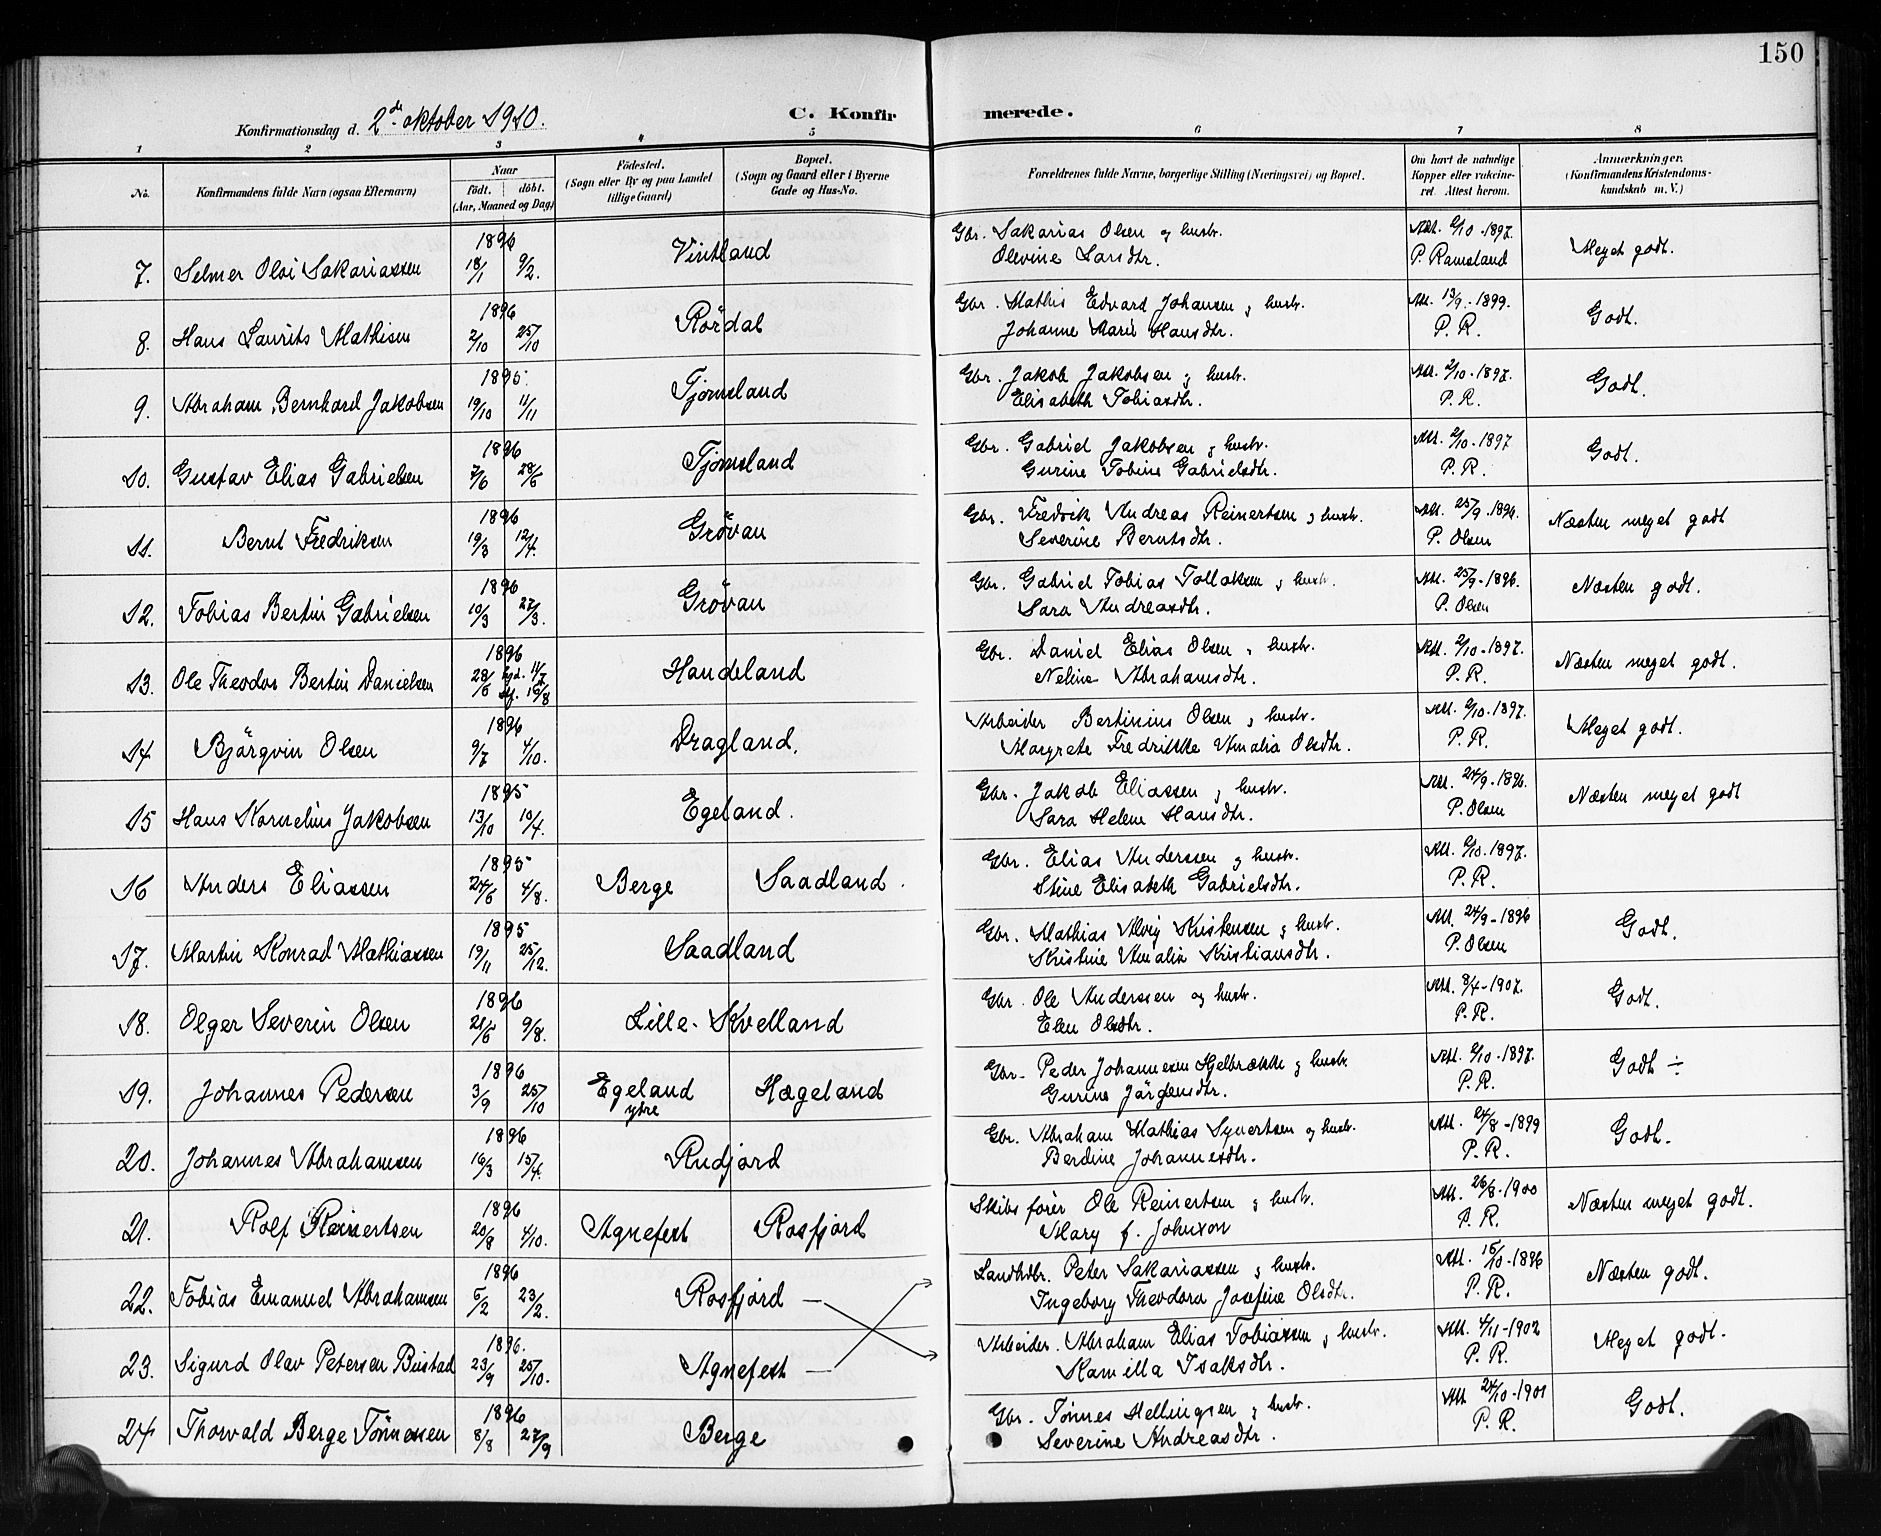 150
Konfirmationsdag d. 2de oktober 1910.
C. Konfirmerede.
1 2 3 4 5 6 7 8
No.
Konfirmandens fulde Navn (ogsaa Efternavn)
Naar
födt. döbt.
(Aar, Maaned og Dag)
Födested.
(Sogn eller By og paa Landet
tillige Gaard)
Bopæl.
(Sogn og Gaard eller i Byerne
Gade og Hus-No.
Forældrenes fulde Navne, borgerlige Stilling (Næringsvei) og Bopæl.
Om havt de naturlige
Kopper eller vakcine-
ret. Attest herom.
Anmerkninger.
(Konfirmandens Kristendoms-
kundskab m. V.)
7. Selmer Olai Sakariassen 1896 18/1 9/2. Vintland Gbr. Sakarias Olsen og hustr. Att. 2/10-1897. Meget godt.
Olevine Larsdtr. P. Ramsland
8. Hans Laurits Mathisen 1896 2/10 25/10 Rördal Gbr. Mathis Edvard Johansen og hustr. Att. 13/9-1899. Godt.
Johanne Marie Hansdtr. P. R.
9. Abraham Bernhard Jakobsen 1895 19/10 11/11 Tjomsland Gbr. Jakob Jakobsen og hustr. Att. 2/10-1897. Godt.
Elisabeth Tobiasdtr. P. R.
10. Gustav Elias Gabrielsen 1896 7/6 28/6 Tjomsland Gbr. Gabriel Jakobsen og hustr. Att. 2/10-1897 Godt.
Gurine Tobine Gabrielsdtr. P. R.
11. Bernt Fredriksen 1896 19/3 12/4. Grövan Gbr. Fredrik Andreas Reinertsen og hustr. Att. 25/9-1896. Næsten meget godt
Severine Berntsdtr. P. Olsen
12. Tobias Bertin Gabrielsen 1896 10/3 27/3. Grövan Gbr. Gabriel Tobias Tollaksen og hustr. Att. 25/9-1896. Næsten godt.
Sara Andreasdtr. P. Olsen
13. Ole Theodor Bertin Danielsen 1896 28/6 hjd. 14/7 stf. 16/8 Haudeland Gbr. Daniel Elias Olsen og hustr. Att. 2/10-1897. Næsten meget godt.
Neline Abrahamsdtr. P. R.
14 Bjärgvin Olsen 1896 9/7 4/10. Dragland. Arbeider Bertinius Olsen og hustr. Att. 2/10.1897. Meget godt.
Margrete Fredrikke Amalia Olsdtr. P. R.
15 Hans Kornelius Jakobsen 1895 13/10 10/4. Egeland. Gbr. Jakob Eliassen og hustr. Att. 24/9-1896. Næsten meget godt
Sara Helene Hansdtr. P. Olsen
16 Anders Eliassen 1895 24/6 4/8. Berge Saadland. Gbr. Elias Anderssen og hustr. Att. 2/10-1897.
Stine Elisabeth Gabrielsdtr. P. R.
17. Martin Konrad Mathiassen 1895 19/11 25/12. Saadland Gbr. Mathias Alvig Kristensen og hustr. Att. 24/9-1896 Godt.
Kristine Amalia Kristiansdtr. P. Olsen
18. Olger Severin Olsen 1896 21/6 9/8. Lille-Kvelland Gbr. Ole Anderssen og hustr. Att. 8/4-1907. Godt.
Elen Olsdtr. P. R.
19. Johannes Pedersen 1896 3/9 25/10 Egeland ytre Hægeland Gbr. Peder Johannesen Hjelbrække og hustr. Att. 2/10-1897. Godt ÷
Gurine Järgensdtr. P. R.
20. Johannes Abrahamsen 1896 16/3 15/4. Rudjord Gbr. Abraham Mathias Syvertsen og hustr. Att. 24/8-1899 Godt.
Berdine Johannesdtr. P. R.
21. Rolf Reinertsen 1896 20/8 4/10. Agnefest Rosfjord Skibsförer Ole Reinertsen og hustr. Att. 26/8-1900 Næsten meget godt.
Mary f. Johnson P. R.
22. Tobias Emanuel Abrahamsen 1896 5/2 23/2. Rosfjord Landhdlr. Peter Sakariassen og hustr. Att. 15/10-1896 Næsten godt.
Ingeborg Theodora Josefine Olsdtr. P. R.
23. Sigurd Olav Petersen Büstad 1896. 23/9 25/10. Agnefest Arbeider. Abraham Elias Tobiassen og hustr. Att. 4/11-1902 Meget godt.
Kamilla Isaksdtr. P. R.
24 Thorvald Berge Tönnessen 1896 8/8 27/9 Berge Gbr. Tönnes Mellingsen og hustr. Att 24/10-1901 Godt.
Severine Andreasdtr. P. R.